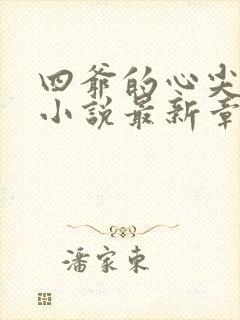 四爷的心尖
小説最新章
潘家東